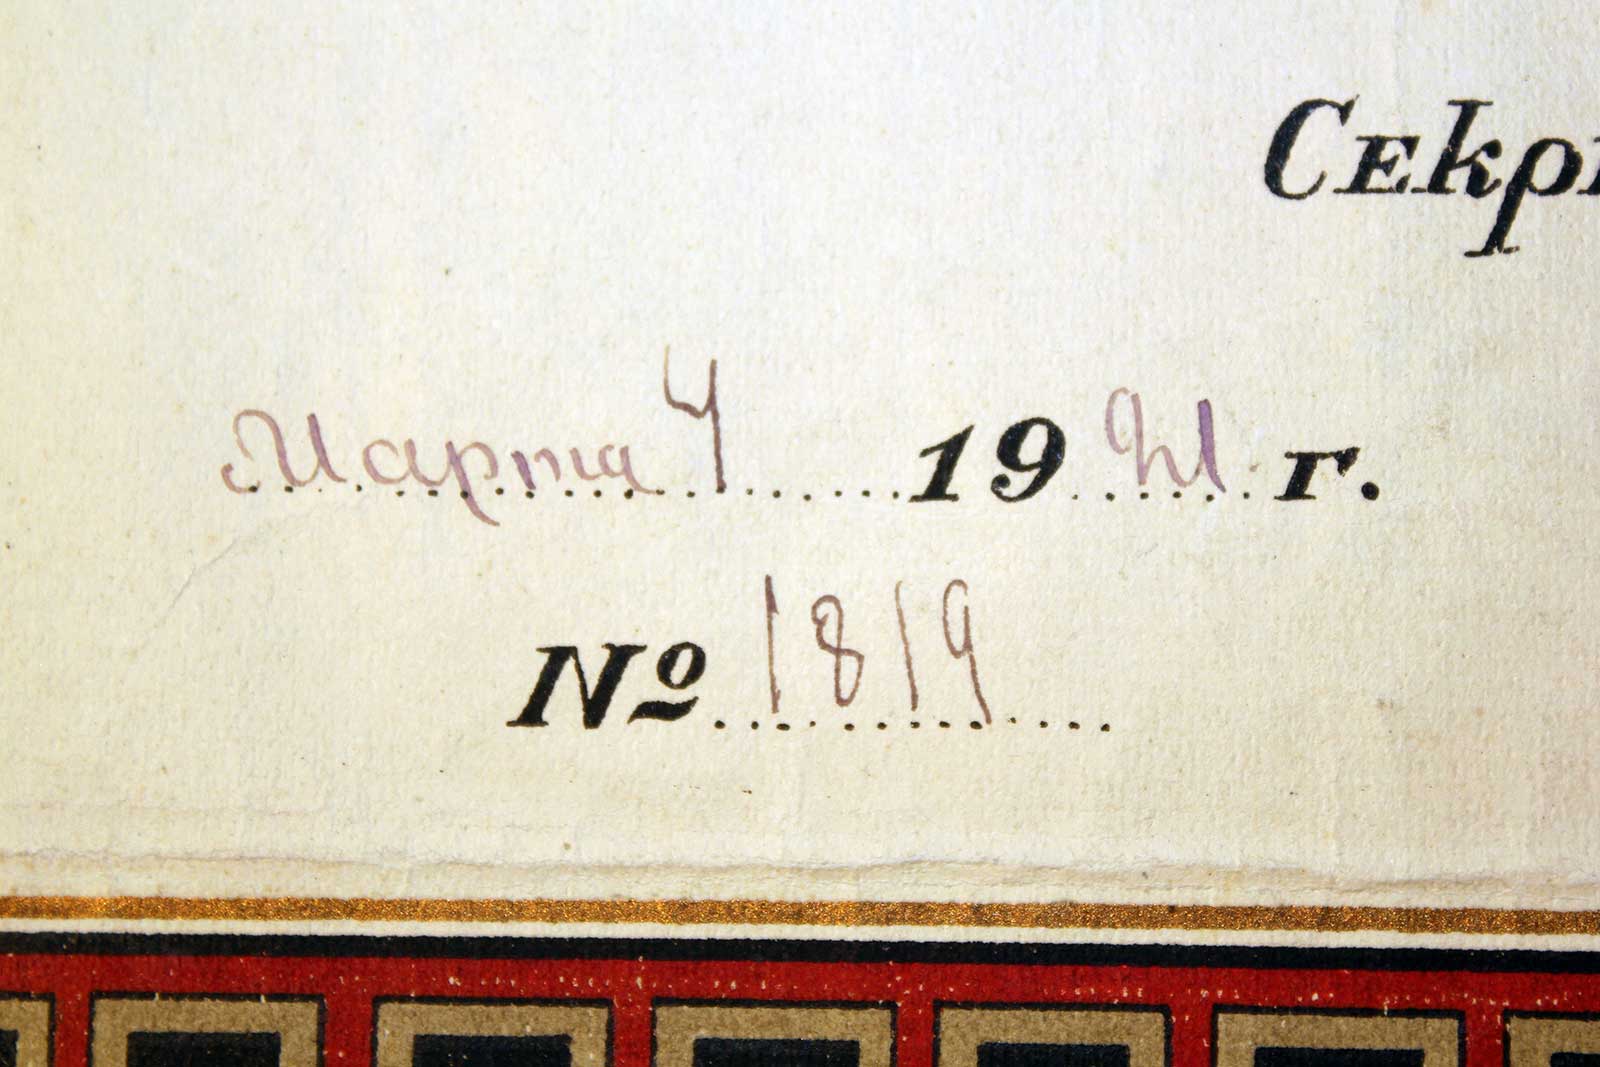 Секр
Марта 4 1921 г.
№ 1819